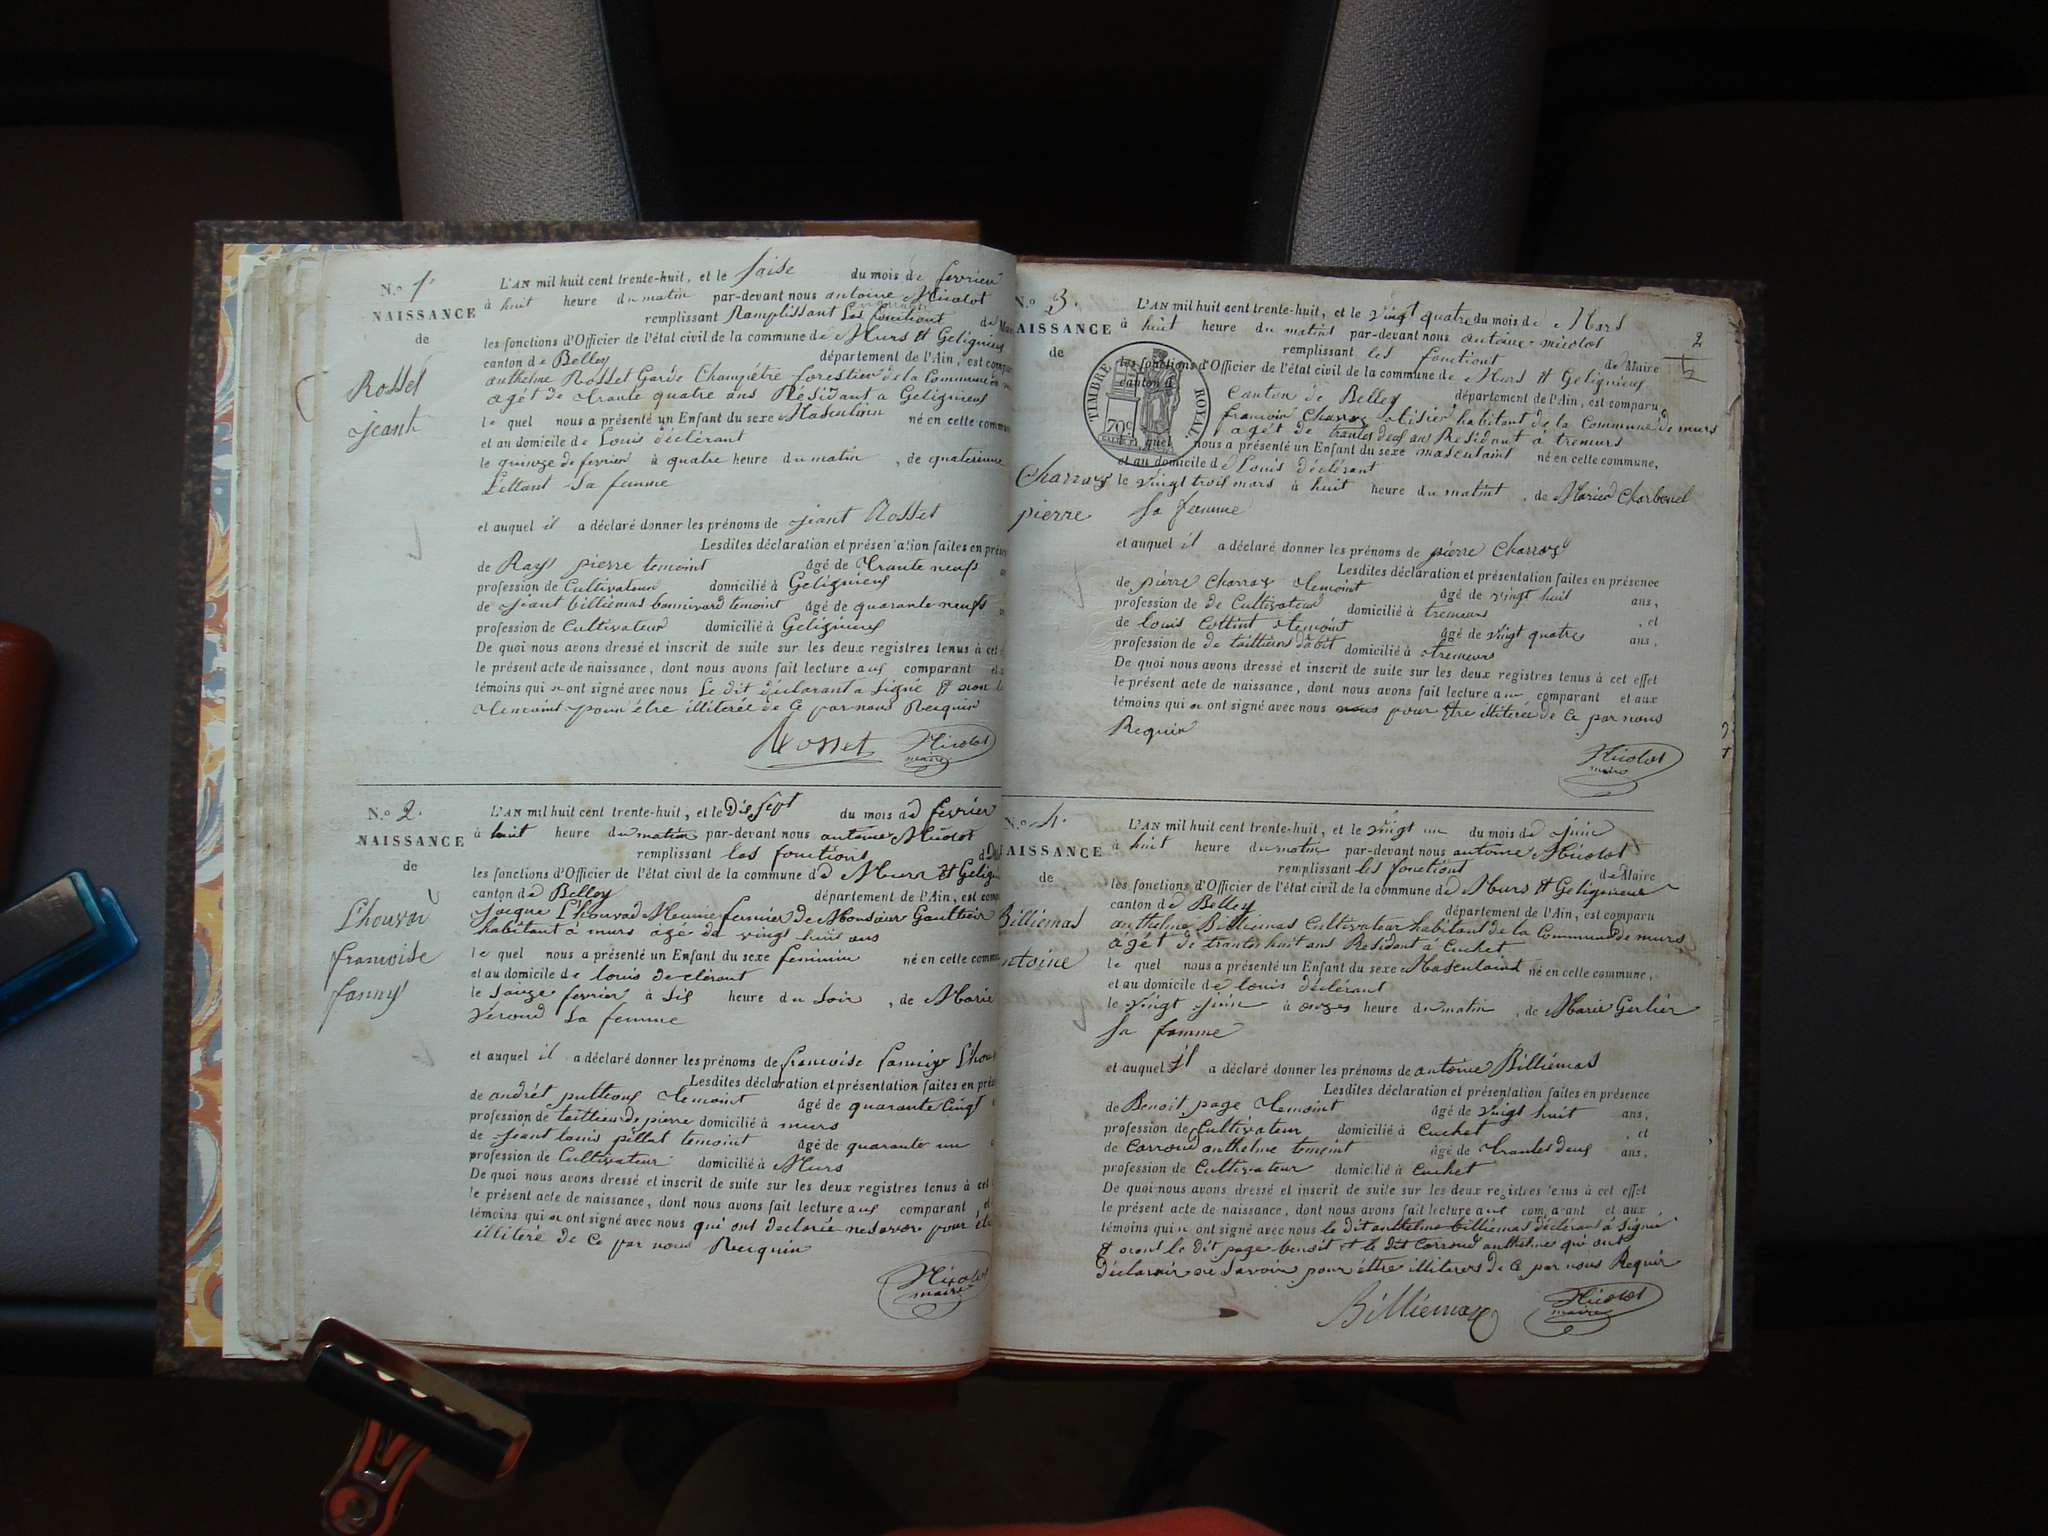 N.o 1.
NAISSANCE
de
Rosset
jeant
L'AN mil huit cent trente-huit, et le saise du mois de fevrier
à huit heure du matin par-devant nous antoine Micolot
remplissant Ramplissant Les fonctiont de
les fonctions d'Officier de l'état civil de la commune de Murs et Gelignieux
canton de Belley département de l'Ain, est
anthelme Rosset Garde Champétre forestier de la Commune
agét de trante quatre ans Résidant a Gelignieux
le quel nous a présenté un Enfant du sexe Masculinn né en cette
et au domicile de Louis déclérant
le quinze de fevrier à quatre heure du matin, de
Lettant sa femme
et auquel il a déclaré donner les prénoms de jeant Rosset
Lesdites déclaration et présentation faites en
de Rays pierre temoint âgé de trante neufs
profession de Cultivateur domicilié à Gelignieux
de jeant billiemas bonnivard temoint âgé de quarante neufs
profession de Cultivateur domicilié à Gelignieux
De quoi nous avons dressé et inscrit de suite sur les deux registres tenus à cet
le présent acte de naissance, dont nous avons fait lecture aux comparant et
témoins qui n ont signé avec nous Le dit déclarant a signé et non
temoint pour étre illiterée de Ce par nous Recquin
Rosset Micolot
maire
N.o 2.
NAISSANCE
de
L'houvad
francoise
fanny
L'AN mil huit cent trente-huit, et le Dis sept du mois de fevrier
à huit heure du matin par-devant nous antoine Micolot
remplissant les fonctions
les fonctions d'Officier de l'état civil de la commune de Murs et
canton de Belley département de l'Ain, est
Jacque L'houvad Meunie fermier de Monsieur Gaultier
habitant à murs âgé de vingt huit ans
le quel nous a présenté un Enfant du sexe feminin né en cette
et au domicile de louis declérant
le saize fevrier à sis heure du soir, de Marie
Veroud sa femme
et auquel il a déclaré donner les prénoms de francoise
Lesdites déclaration et présentation faites en
de andrét temoint âgé de quarante cinqt
profession de taillieur de pierre domicilié à murs
de jeant louis pillat temoint âgé de quarante un
profession de Cultivateur domicilié à Murs
De quoi nous avons dressé et inscrit de suite sur les deux registres tenus à cet
le présent acte de naissance, dont nous avons fait lecture aux comparant et
témoins qui n ont signé avec nous qui ont declarée ne savoir pour
illitéré de Ce par nous Recquin
Micolot
maire
N.o 3.
NAISSANCE
de
Charroz
pierre
2
L'AN mil huit cent trente-huit, et le vingt quatre du mois de Mars
à huit heure du matint par-devant nous antoine micolot
remplissant les fonctiont de Maire
les fonctions d'Officier de l'état civil de la commune de Murs et Gelignieux
canton d
TIMBRE ROYAL
70 c
Canton de Belley département de l'Ain, est comparu
francois Charroz habitant de la Commune de murs
agét de trantes deux ans Résidant à tremurs
quel nous a présenté un Enfant du sexe masculaint né en cette commune,
et au domicile de Louis déclérant
le vingt trois mars à huit heure du matint, de Marie Charbonel
sa femme
et auquel il a déclaré donner les prénoms de pierre Charroz
Lesdites déclaration et présentation faites en présence
de pierre Charroz temoint âgé de vingt huit ans,
profession de de Cultivateur domicilié à tremurs, et
de louis Cottint temoint âgé de vingt quatre ans,
profession de de taillieurs d'abit domicilié à tremeurs
De quoi nous avons dressé et inscrit de suite sur les deux registres tenus à cet effet
le présent acte de naissance, dont nous avons fait lecture aux comparant et aux
témoins qui n ont signé avec nous pour étre illiterée de Ce par nous
Requin
Micolot
maire
N.o 4.
NAISSANCE
de
Billiemas
antoine
L'AN mil huit cent trente-huit, et le vingt un du mois de juin
à huit heure du matin par-devant nous antoine Micolot
remplissant les fonctiont de Maire
les fonctions d'Officier de l'état civil de la commune de Murs et Gelignieux
canton de Belley département de l'Ain, est comparu
anthelme Billiemas Cultivateur habitant de la Commune de murs
âgét de trantes huit ans Résidant à Cuchet
le quel nous a présenté un Enfant du sexe Masculaint né en cette commune,
et au domicile de louis déclérant
le vingt juin à onzes heure du matin, de Marie Gerlier
sa femme
et auquel il a déclaré donner les prénoms de antoine Billiemas
Lesdites déclaration et présentation faites en présence
de Benoit page temoint âgé de vingt huit ans,
profession de Cultivateur domicilié à Cuchet, et
de Carroud anthelme temoint âgé de trantes deux ans,
profession de Cultivateur domicilié à Cuchet
De quoi nous avons dressé et inscrit de suite sur les deux registres tenus à cet effet
le présent acte de naissance, dont nous avons fait lecture aux comparant et aux
témoins qui n ont signé avec nous le dit anthelme billiemas déclérant à signé
et nont le dit page benoit et le dit Carroud anthelme qui ont
déclarair ne savoir pour éttre illiterers de Ce par nous Requir
Billiemaz Micolot
maire